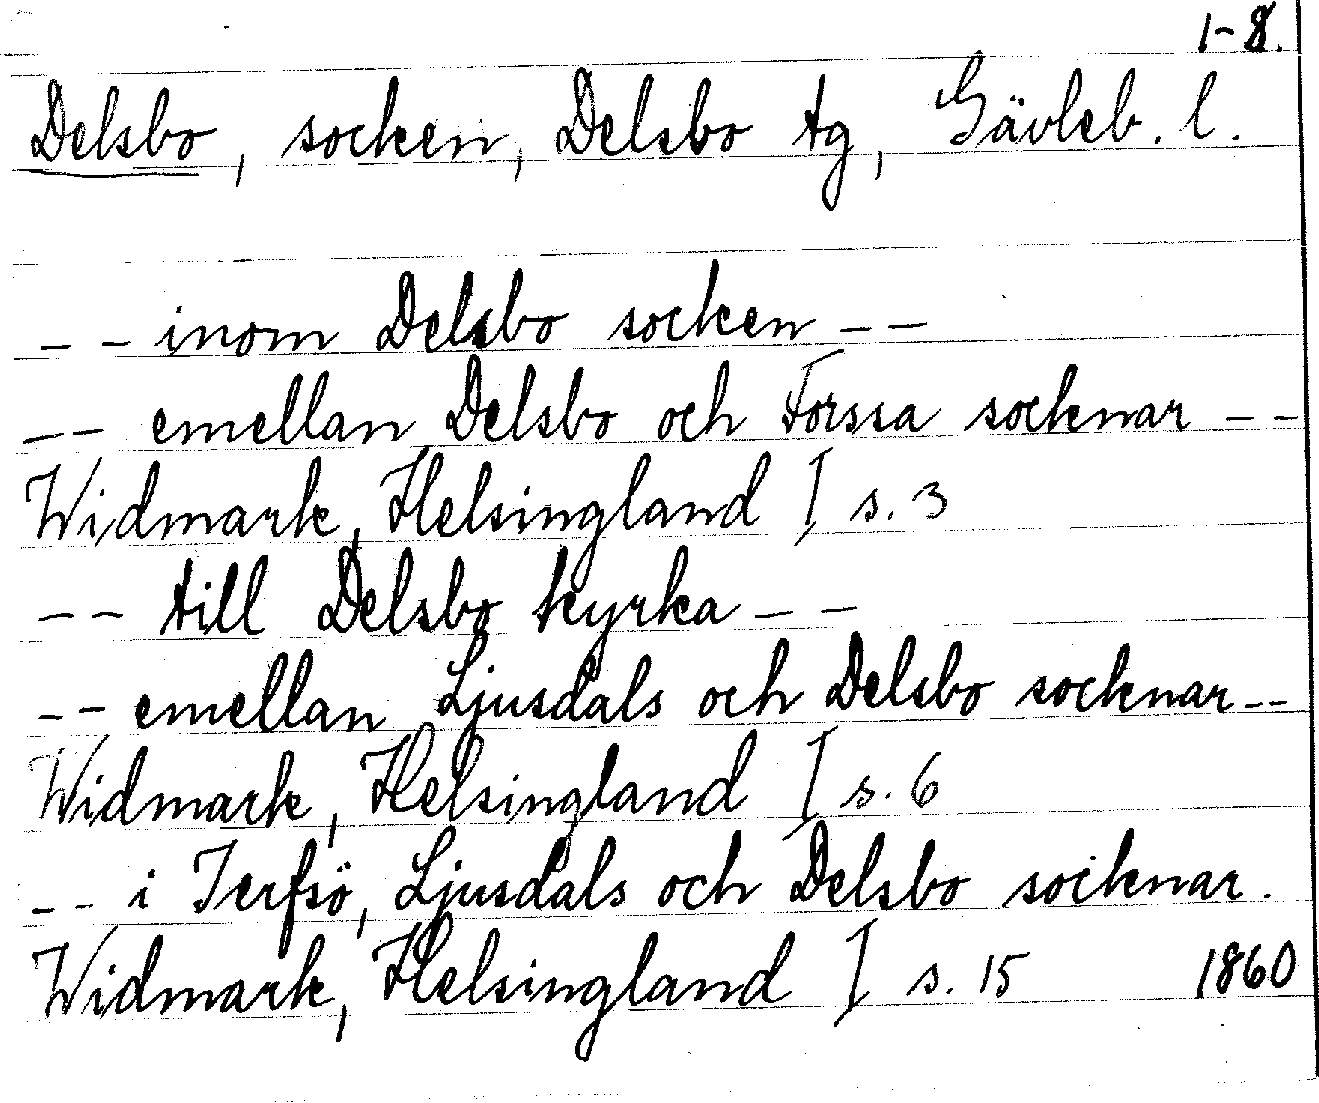 1-8.
Delsbo, socken, Delsbo tg, Gävleb. l.
-- inom Delsbo socken --
-- emellan Delsbo och Forssa socknar --
Widmark, Helsingland I s. 3
-- till Delsbo kyrka --
-- emellan Ljusdals och Delsbo socknar --
Widmark, Helsingland I s. 6
-- i Jerfsö, Ljusdals och Delsbo socknar.
Widmark, Helsingland I s. 15 1860